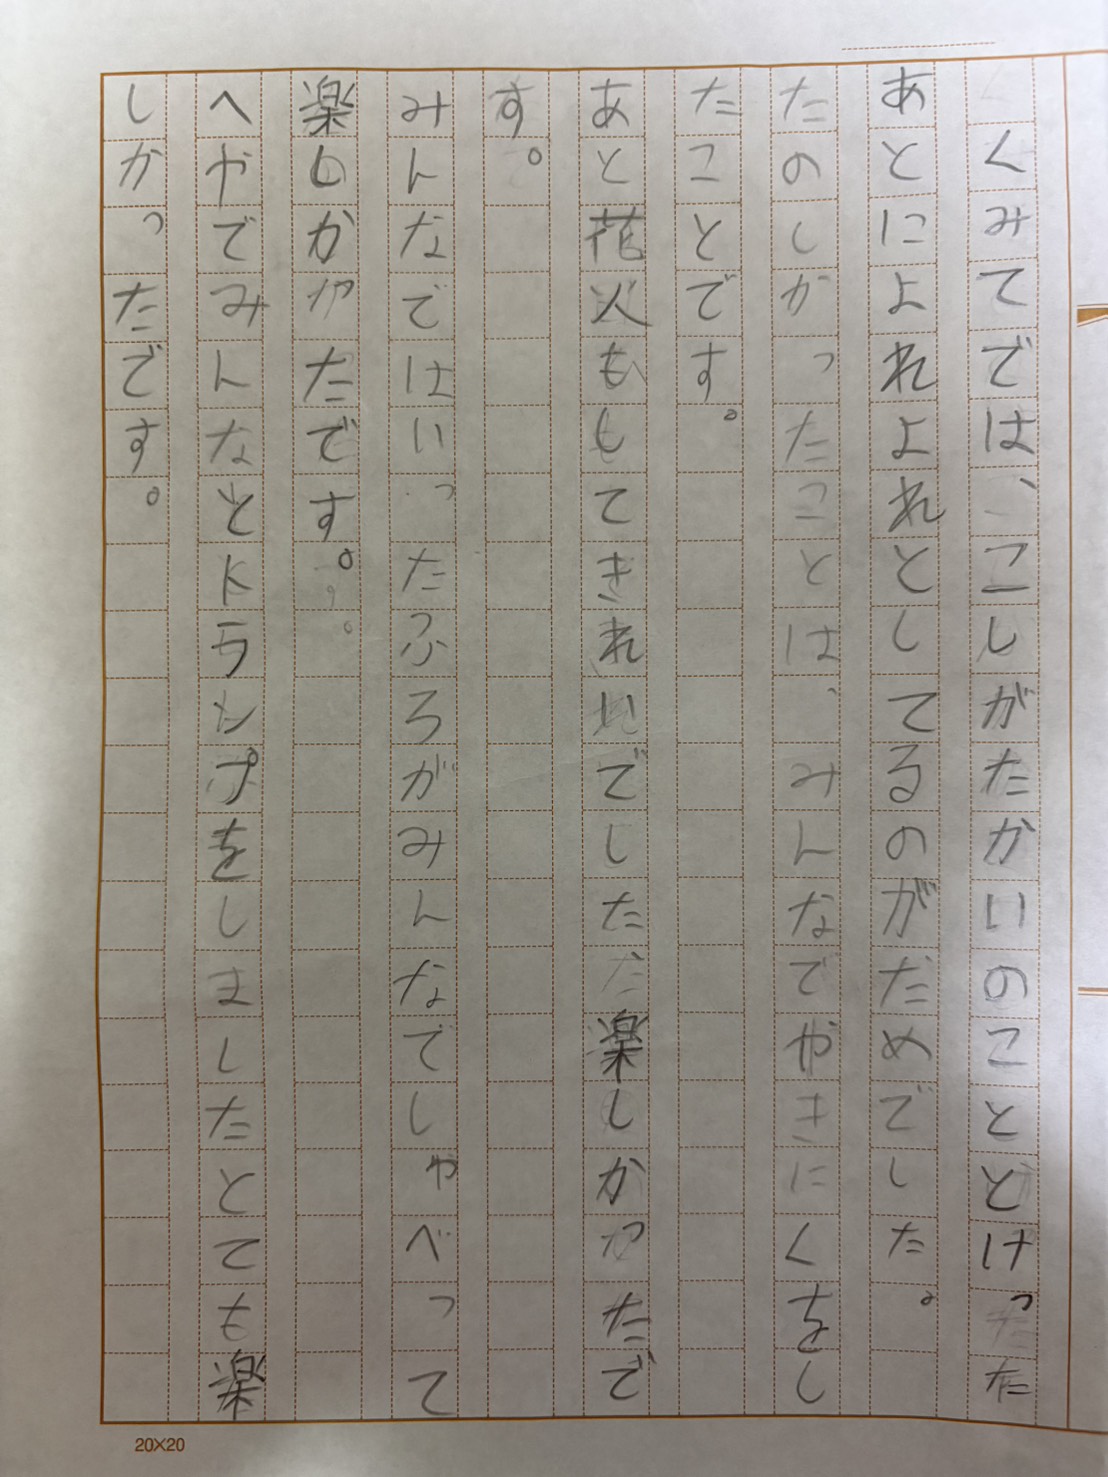 くみてでは、こしがたかいのことどけった
あとによれよれとしてるのがだめでした。
たのしかったことは、みんなでやきにくをし
たことです。
あと花火もしてきれいでした楽しかったで
す。
みんなではいったふろがみんなでしゃべって
楽しかったです。
へやでみんなとトランプをしましたとても楽
しかったです。
20×20